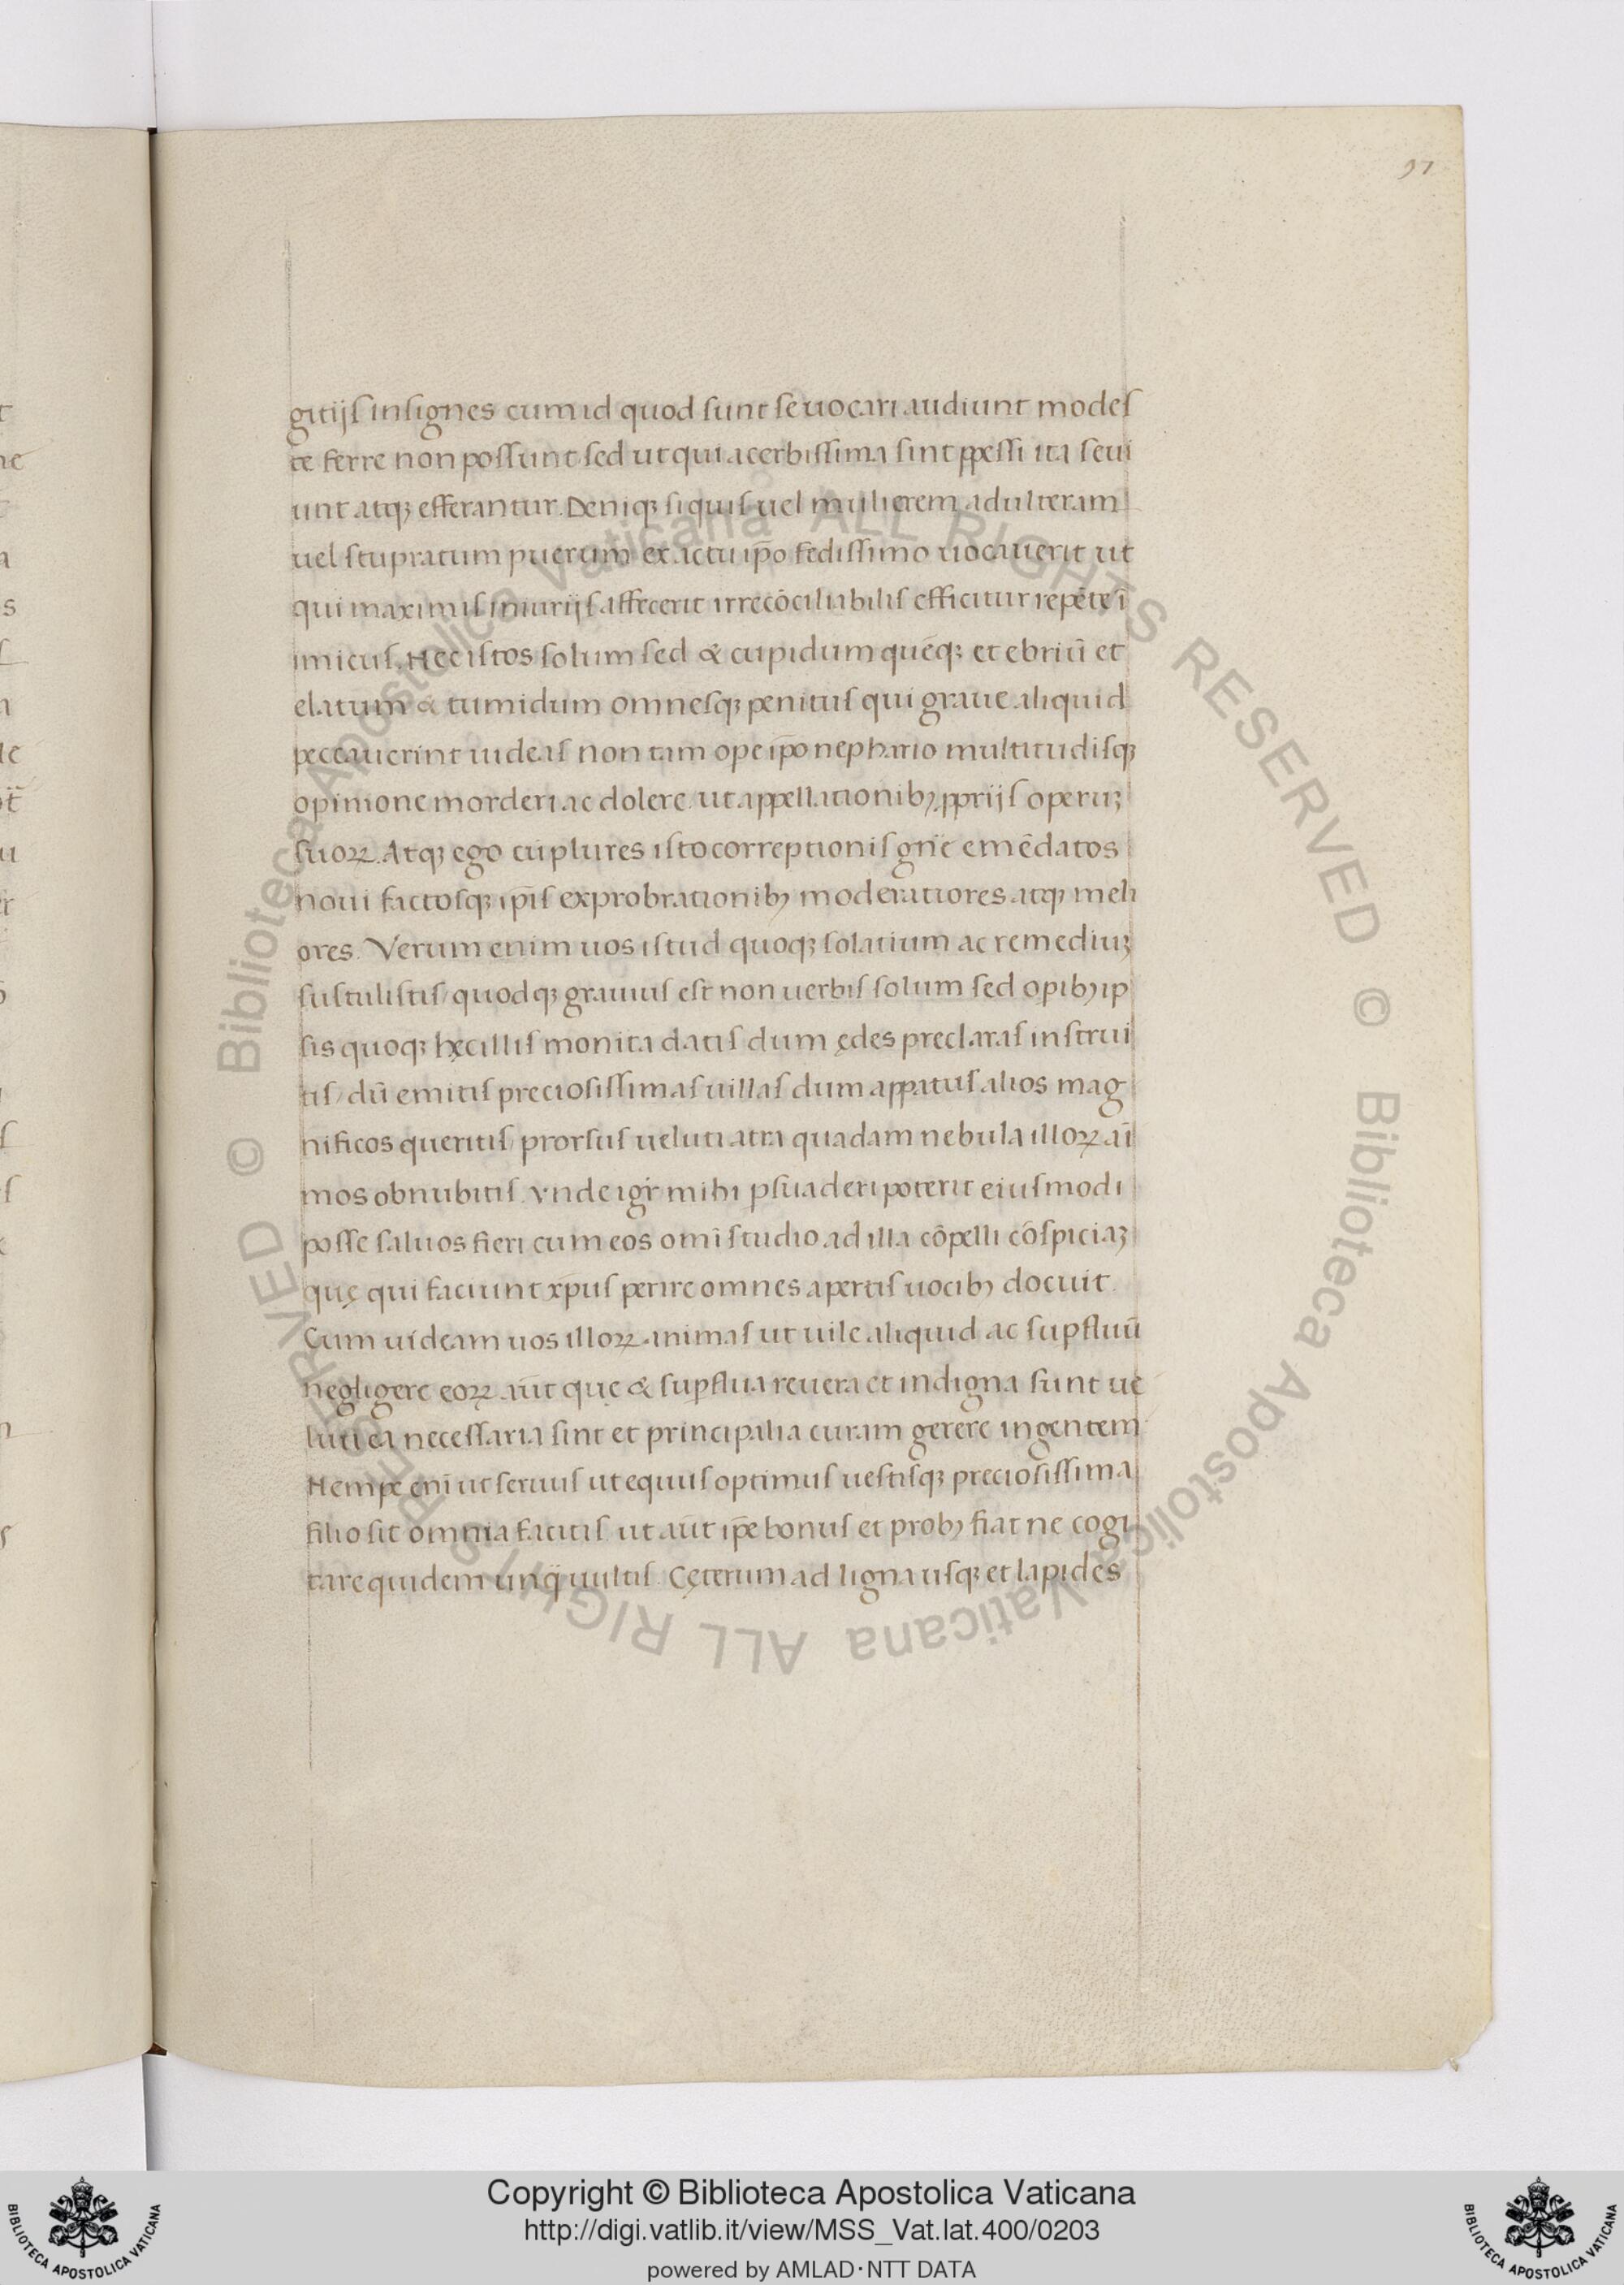 97
gitijſ inſignes cum id quod ſunt ſe uocari audiunt modeſ
te ferre non poſſunt ſed ut qui acerbiſſima ſint ꝑpeſſi ita ſeui
unt atqꝫ efferantur. Deniqꝫ ſiquiſ uel mulierem adulteram
uel ſtupratum puerum ex actu ip̄o fediſſimo uocauerit ut
qui maximiſ iniurijſ affecerit irrecōciliabiliſ efficitur repēte ī
imicuſ. Nec iſtos ſolum ſed & cupidum quēqꝫ et ebriū et
elatum & tumidum omneſqꝫ penituſ qui graue aliquid
peccauerint uideaſ non tam ope ip̄o nephario multitudiſqꝫ
opinione morderi ac dolere. ut appellationibꝫ ꝓprijſ operuꝫ
ſuoꝝ. Atqꝫ ego cū plures iſto correptioniſ gn̄e emēdatos
noui factoſqꝫ ip̄iſ exprobrationibꝫ moderatiores atqꝫ meli
ores. Verum enim uos iſtud quoqꝫ ſolatium ac remediuꝫ
ſuſtuliſtiſ/ quodqꝫ grauiuſ eſt non uerbiſ ſolum ſed opibꝫ ip
ſis quoqꝫ hęc illiſ monita datiſ dum ędes preclaraſ inſtrui
tiſ/ dū emitiſ precioſiſſimaſ uillaſ dum apꝑatuſ alios mag
nificos queritiſ/ prorſuſ ueluti atra quadam nebula illoꝝ aī
mos obnubitiſ. Vnde igr̄ mihi ꝑſuaderi poterit eiuſmodi
poſſe ſaluos fieri cum eos om̄i ſtudio ad illa cōpelli cōſpiciaꝫ
quę qui faciunt xp̄uſ perire omnes apertiſ uocibꝫ docuit.
Cum uideam uos illoꝝ animaſ ut uile aliquid ac ſupfluū
negligere eoꝝ aūt que & ſupflua reuera et indigna ſunt ue
luti ea neceſſaria ſint et principalia curam gerere ingentem
Nempe eni ut ſeruuſ ut equuſ optimuſ ueſtiſqꝫ precioſiſſima
filio ſit omnia facitiſ. ut aūt ip̄e bonuſ et probꝫ fiat ne cogi
tare quidem unq̄ uultiſ. Cęterum ad ligna uſqꝫ et lapides
© Biblioteca Apostolica Vaticana ALL RIGHTS RESERVED © Biblioteca Apostolica Vaticana ALL RIGHTS RESERVED
Copyright © Biblioteca Apostolica Vaticana
http://digi.vatlib.it/view/MSS_Vat.lat.400/0203
powered by AMLAD·NTT DATA
BIBLIOTECA APOSTOLICA VATICANA
BIBLIOTECA APOSTOLICA VATICANA